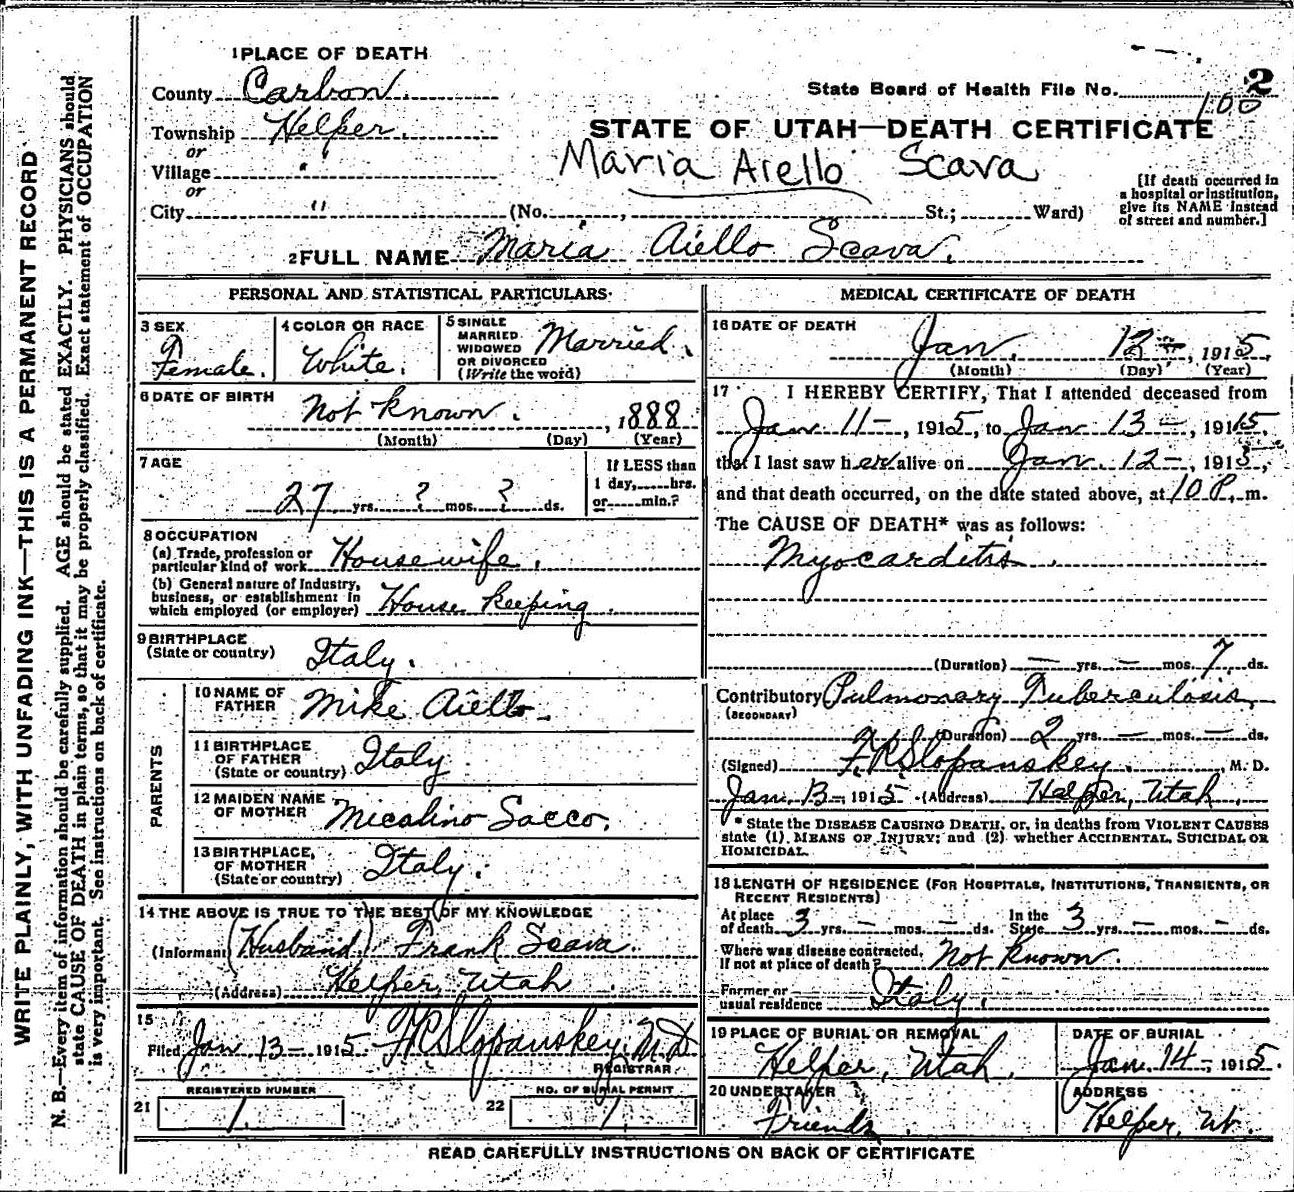 WRITE PLAINLY, WITH UNFADING INK—THIS IS A PERMANENT RECORD
N. B.—Every item of information should be carefully supplied. AGE should be stated EXACTLY. PHYSICIANS should
state CAUSE OF DEATH in plain terms, so that it may be properly classified. Exact statement of OCCUPATION
is very important. See instructions on back of certificate.
1 PLACE OF DEATH
County Carbon.
Township Helper.
or
Village "
or
City "
(No. , St.; Ward)
State Board of Health File No. 2
100
STATE OF UTAH—DEATH CERTIFICATE
Maria Aiello Scava
[If death occurred in
a hospital or institution,
give its NAME instead
of street and number.]
2 FULL NAME Maria Aiello Scava.
PERSONAL AND STATISTICAL PARTICULARS
3 SEX
Female.
4 COLOR OR RACE
White.
5 SINGLE
MARRIED
WIDOWED
OR DIVORCED
(Write the word)
Married.
6 DATE OF BIRTH
Not known. , 1888
(Month) (Day) (Year)
7 AGE
27 yrs. ? mos. ? ds.
If LESS than
1 day, hrs.
or min.?
8 OCCUPATION
(a) Trade, profession or
particular kind of work Housewife.
(b) General nature of Industry,
business, or establishment in
which employed (or employer) House keeping.
9 BIRTHPLACE
(State or country) Italy.
PARENTS
10 NAME OF
FATHER Mike Aiello.
11 BIRTHPLACE
OF FATHER
(State or country) Italy.
12 MAIDEN NAME
OF MOTHER Micalino Sacco.
13 BIRTHPLACE,
OF MOTHER
(State or country) Italy.
14 THE ABOVE IS TRUE TO THE BEST OF MY KNOWLEDGE
(Informant (Husband) Frank Scava.
(Address) Helper, Utah
15
Filed Jan 13 - 1915. F R Slopanskey, M.D
REGISTRAR
REGISTERED NUMBER
21 1.
NO. OF BURIAL PERMIT
22 1
MEDICAL CERTIFICATE OF DEATH
16 DATE OF DEATH
Jan. , 1915.
(Month) (Day) (Year)
17 I HEREBY CERTIFY, That I attended deceased from
Jan 11 - , 1915, to Jan 13 - , 1915,
that I last saw her alive on Jan. 12 - , 1915,
and that death occurred, on the date stated above, at 10 P. m.
The CAUSE OF DEATH* was as follows:
Myocarditis.
(Duration) — yrs. — mos. 7 ds.
Contributory Pulmonary Tuberculosis.
(SECONDARY)
(Duration) 2 yrs. — mos. — ds.
(Signed) F. R. Slopanskey. , M. D.
Jan. 13 -, 1915. (Address) Helper, Utah.
* State the DISEASE CAUSING DEATH, or, in deaths from VIOLENT CAUSES
state (1) MEANS OF INJURY; and (2) whether ACCIDENTAL, SUICIDAL OR
HOMICIDAL.
18 LENGTH OF RESIDENCE (FOR HOSPITALS, INSTITUTIONS, TRANSIENTS, OR
RECENT RESIDENTS)
At place
of death 3 yrs. — mos. — ds.
In the
State 3 yrs. — mos. — ds.
Where was disease contracted,
If not at place of death? Not known.
Former or
usual residence Italy.
19 PLACE OF BURIAL OR REMOVAL
Helper, Utah.
DATE OF BURIAL
Jan. 14 -, 1915.
20 UNDERTAKER
Friends.
ADDRESS
Helper, Ut.
READ CAREFULLY INSTRUCTIONS ON BACK OF CERTIFICATE